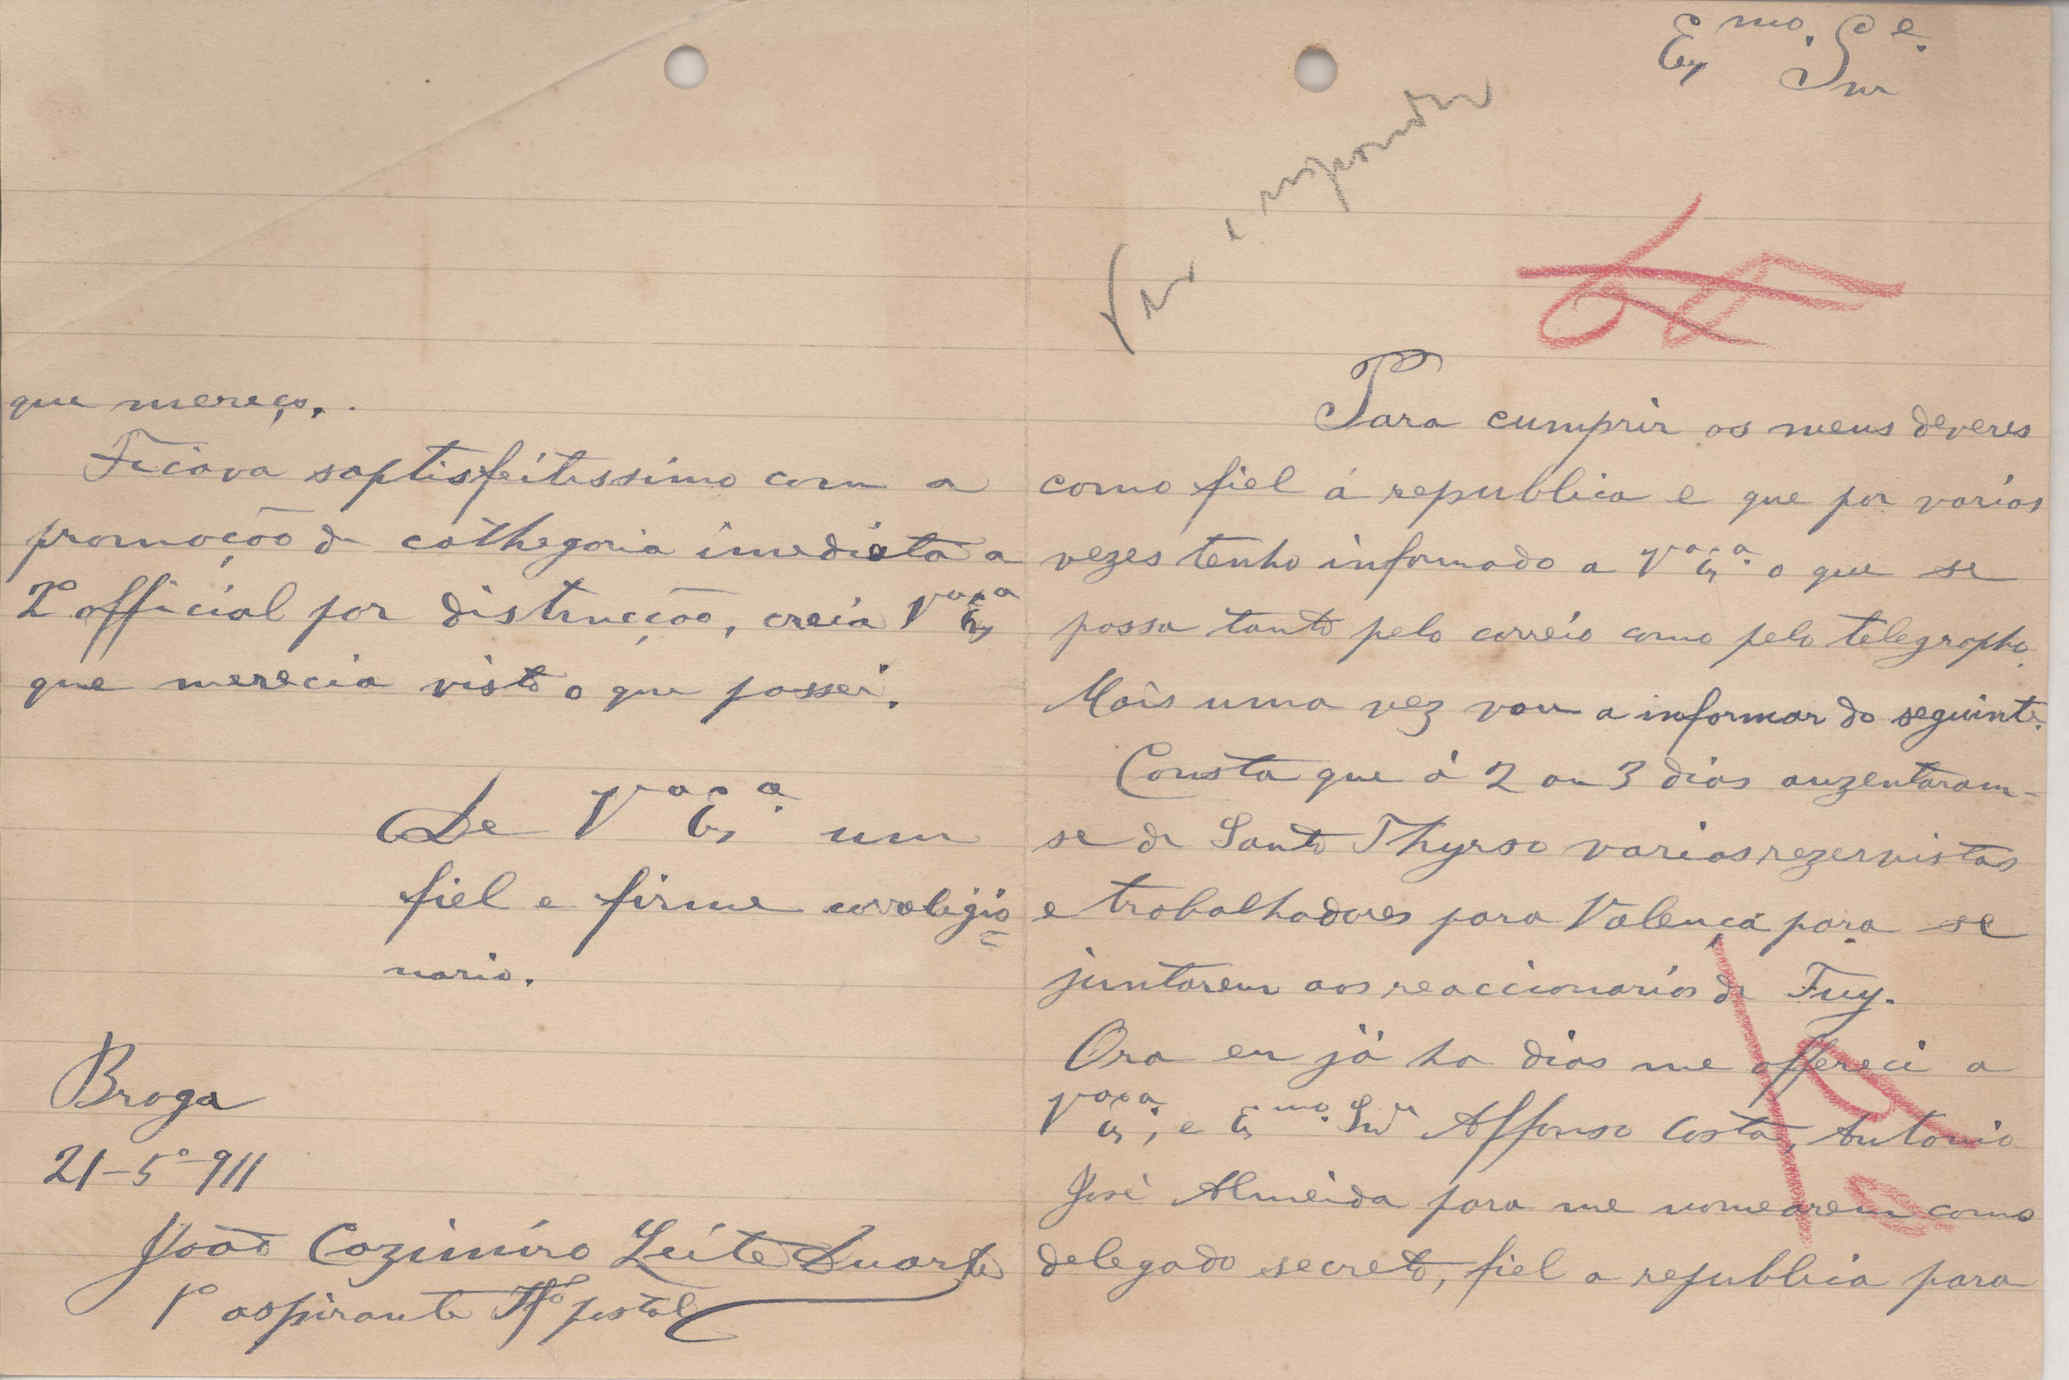 Exmo. Snr
Para cumprir os meus deveres
como fiel á republica e que por varias
vezes tenho informado a Va Exa. o que se
passa tanto pelo correio como pelo telegrapho.
Mais uma vez vou a informar do seguinte.
Consta que á 2 ou 3 dias auzentaram-
se de Santo Thyrso varios rezervistas
e trabalhadores para Valença para se
juntarem aos reaccionarios de Tuy.
Ora eu já ha dias me offereci a
Va Exa, e Exmo. Snr Affonso Costa, Antonio
José Almeida para me nomearem como
delegado secreto, fiel a republica para
que mereço.
Ficava saptisfeitissimo com a
promoção de cathegoria imediata a
2º official por distincção, creia Va Exa
que merecia visto o que passei.
De Va Exa. um
fiel e firme correligio=
nario.
Braga
21-5º-911
João Cazimiro Leite Duarte
1º aspirante postal